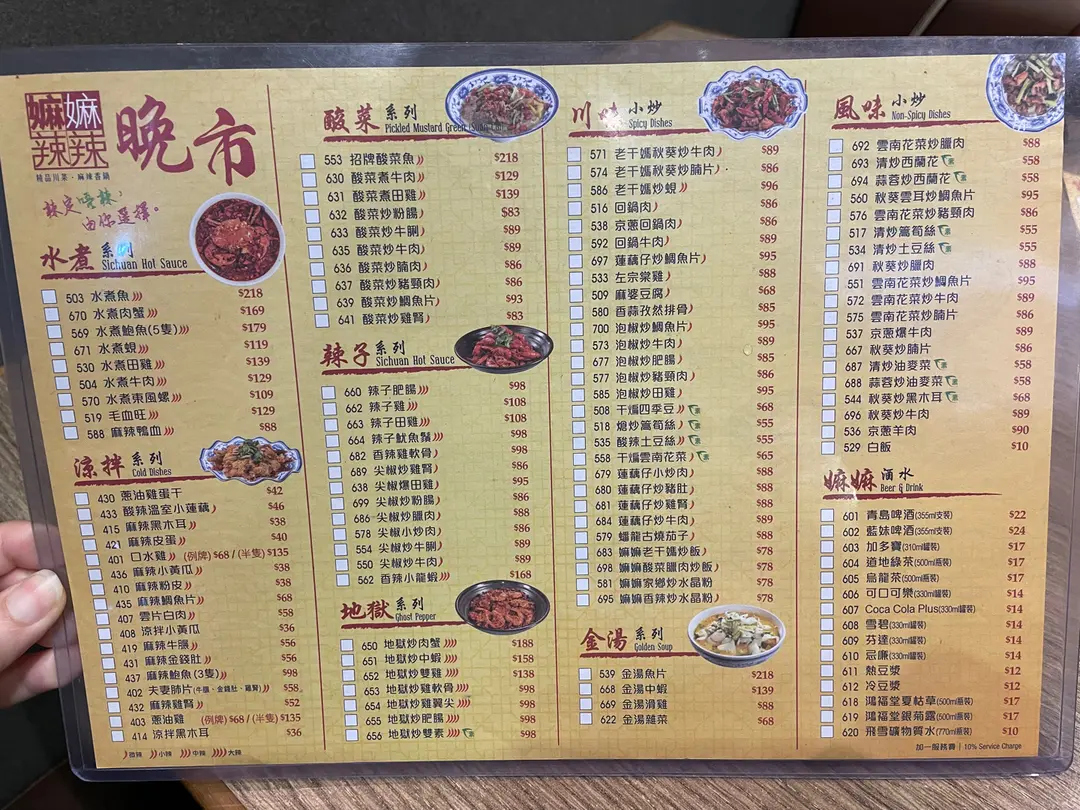 嫲嫲辣辣
精品川菜·麻辣香鍋
晚市
辣定唔辣,
由你選擇。
水煮系列
Sichuan Hot Sauce
503 水煮魚 $218
670 水煮肉蟹 $169
569 水煮鮑魚(5隻) $179
671 水煮蜆 $119
530 水煮田雞 $139
504 水煮牛肉 $129
570 水煮東風螺 $109
519 毛血旺 $129
588 麻辣鴨血 $88
涼拌系列
Cold Dishes
430 蔥油雞蛋干 $42
433 酸辣溫室小蓮藕 $46
415 麻辣黑木耳 $38
421 麻辣皮蛋 $40
401 口水雞 (例牌) $68 / (半隻) $135
436 麻辣小黃瓜 $38
410 麻辣粉皮 $38
435 麻辣鯛魚片 $68
407 雲片白肉 $58
408 涼拌小黃瓜 $36
419 麻辣牛𦟌 $56
431 麻辣金錢肚 $56
437 麻辣鮑魚(3隻) $98
402 夫妻肺片(牛𦟌、金錢肚、雞腎) $58
432 麻辣雞腎 $52
403 蔥油雞 (例牌) $68 / (半隻) $135
414 涼拌黑木耳 $36
微辣 小辣 中辣 大辣
酸菜系列
Pickled Mustard Green
553 招牌酸菜魚 $218
630 酸菜煮牛肉 $129
631 酸菜煮田雞 $139
632 酸菜炒粉腸 $83
633 酸菜炒牛𦟌 $89
635 酸菜炒牛肉 $89
636 酸菜炒腩肉 $86
637 酸菜炒豬頸肉 $86
639 酸菜炒鯛魚片 $93
641 酸菜炒雞腎 $83
辣子系列
Sichuan Hot Sauce
660 辣子肥腸 $98
662 辣子雞 $108
663 辣子田雞 $108
664 辣子魷魚鬚 $98
682 香辣雞軟骨 $98
689 尖椒炒雞腎 $86
638 尖椒爆田雞 $95
699 尖椒炒粉腸 $86
686 尖椒炒腊肉 $88
578 尖椒小炒肉 $86
554 尖椒炒牛𦟌 $89
550 尖椒炒牛肉 $89
562 香辣小龍蝦 $168
地獄系列
Ghost Pepper
650 地獄炒肉蟹 $188
651 地獄炒中蝦 $158
652 地獄炒雙雞 $138
653 地獄炒雞軟骨 $98
654 地獄炒雞翼尖 $98
655 地獄炒肥腸 $98
656 地獄炒雙素 $98
川味小炒
Spicy Dishes
571 老干媽秋葵炒牛肉 $89
574 老干媽秋葵炒腩片 $86
586 老干媽炒蜆 $96
516 回鍋肉 $86
538 京蔥回鍋肉 $86
592 回鍋牛肉 $89
697 蓮藕仔炒鯛魚片 $95
533 左宗棠雞 $88
509 麻婆豆腐 $68
580 香蒜孜然排骨 $85
700 泡椒炒鯛魚片 $95
573 泡椒炒牛肉 $89
677 泡椒炒肥腸 $85
577 泡椒炒豬頸肉 $86
545 泡椒炒田雞 $95
508 干煸四季豆 $68
518 熗炒窩筍絲 $55
535 酸辣土豆絲 $55
558 干煸雲南花菜 $65
679 蓮藕仔小炒肉 $88
680 蓮藕仔炒豬肚 $88
681 蓮藕仔炒雞腎 $88
684 蓮藕仔炒牛肉 $89
579 蟠龍古燒茄子 $88
683 嫲嫲老干媽炒飯 $78
698 嫲嫲酸菜腊肉炒飯 $78
581 嫲嫲家鄉炒水晶粉 $78
695 嫲嫲香辣炒水晶粉 $78
金湯系列
Golden Soup
539 金湯魚片 $218
668 金湯中蝦 $139
669 金湯滑雞 $88
622 金湯雜菜 $68
風味小炒
Non-Spicy Dishes
692 雲南花菜炒腊肉 $88
693 清炒西蘭花 $58
694 蒜蓉炒西蘭花 $58
560 秋葵雲耳炒鯛魚片 $95
576 雲南花菜炒豬頸肉 $86
517 清炒窩筍絲 $55
534 清炒土豆絲 $55
691 秋葵炒腊肉 $88
551 雲南花菜炒鯛魚片 $95
572 雲南花菜炒牛肉 $89
575 雲南花菜炒腩片 $86
537 京蔥爆牛肉 $89
667 秋葵炒腩片 $86
687 清炒油麥菜 $58
688 蒜蓉炒油麥菜 $58
544 秋葵炒黑木耳 $68
696 秋葵炒牛肉 $89
536 京蔥羊肉 $90
529 白飯 $10
嫲嫲酒水
Beer & Drink
601 青島啤酒(355ml支裝) $22
602 藍妹啤酒(355ml支裝) $24
603 加多寶(310ml罐裝) $17
604 道地綠茶(500ml瓶裝) $17
605 烏龍茶(500ml瓶裝) $17
606 可口可樂(330ml罐裝) $14
607 Coca Cola Plus(330ml罐裝) $14
608 雪碧(330ml罐裝) $14
609 芬達(330ml罐裝) $14
610 忌廉(330ml罐裝) $14
611 熱豆漿 $12
612 冷豆漿 $12
618 鴻福堂夏枯草(500ml瓶裝) $17
619 鴻福堂銀菊露(500ml瓶裝) $17
620 飛雪礦物質水(770ml瓶裝) $10
加一服務費 | 10% Service Charge